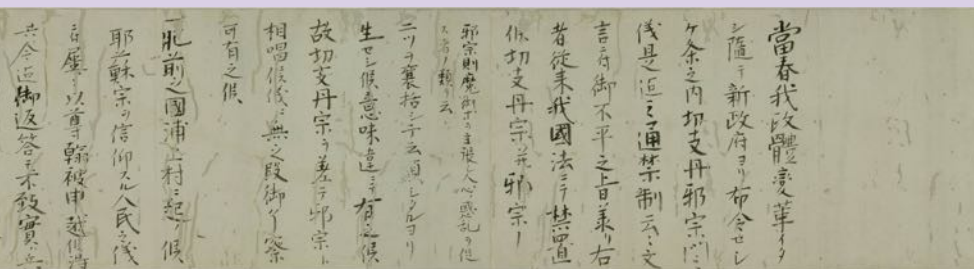 當春我政體變革イタ
シ隨テ新政府ヨリ布令セシ
ケ条之内切支丹邪宗門ハ
儀是迄之通禁制云々文
言ニ付御不平之旨承リ右
者従来我國法ニテ禁置
候切支丹宗并邪宗ト
邪宗則魔術ホヲ主張人心惑乱ヲ促
ス者ノ類ヲ云
ニツヲ裏括シテ云
生セシ候意味違ニテ有之候
故切支丹宗ヲ差テ邪宗ト
相唱候儀ニ無之段御了察
可有之候
一肥前之國浦上村ニ起リ候
耶蘇宗ヲ信仰スル人民之儀
ニ付屡々以尊翰被申越候得
共今迄御返答不致實ニ